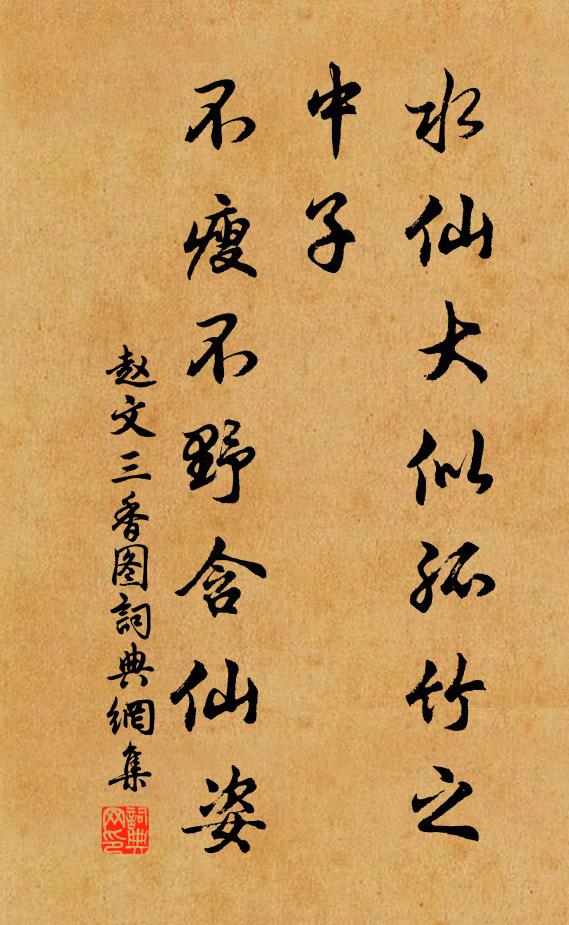 水仙大似孤竹之
中子
不瘦不野含仙姿
赵文三香图詞典網集
詞典网印